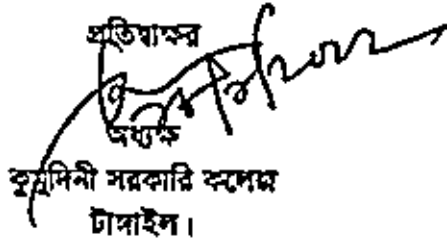 প্রতিস্বাক্ষর
অধ্যক্ষ
কুমুদিনী সরকারি কলেজ
টাঙ্গাইল।